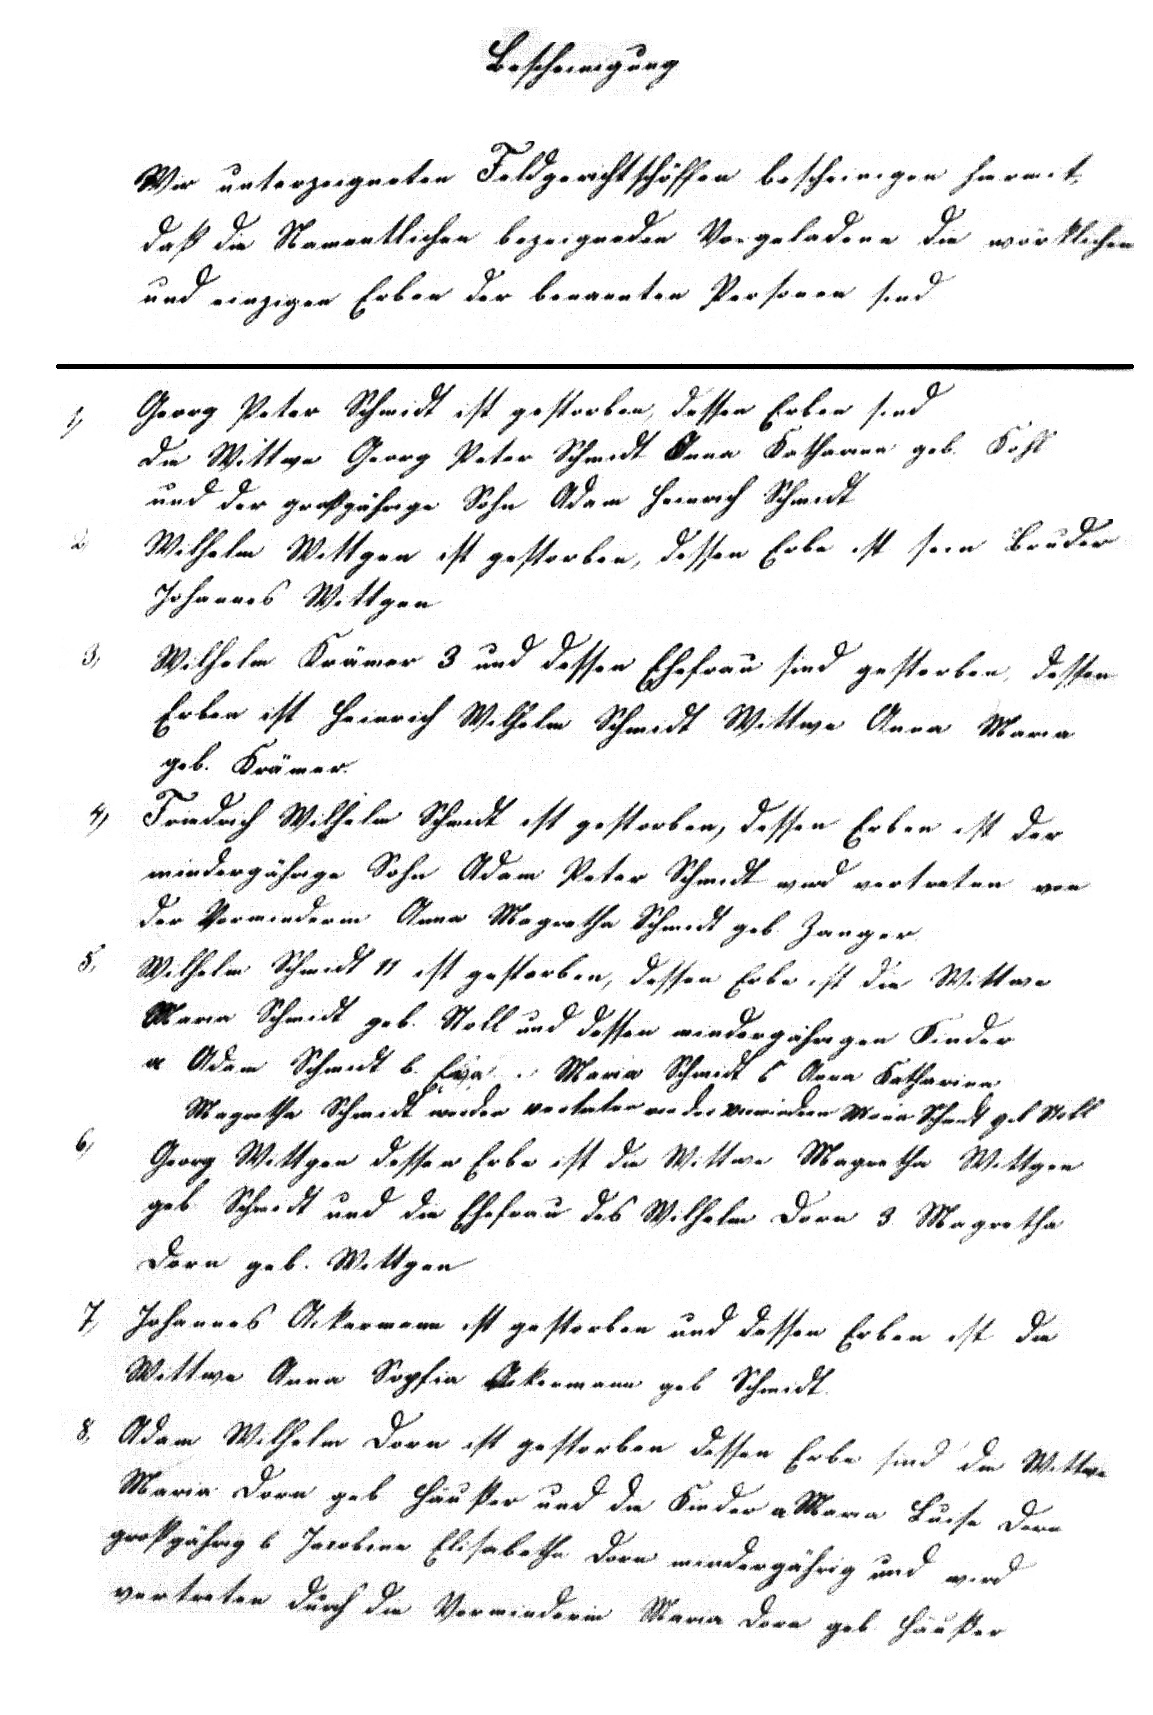 Bescheinigung
Wir unterzeigneten Feldgerichtschöffen bescheinigen hiermit,
daß die Namentlichen bezeigneden Vorgeladene die wörklichen
und einzigen Erben der benannten Personen sind
1, Georg Peter Schmidt ist gestorben, dessen Erben sind
die Wittwe Georg Peter Schmidt Anna Katharina geb. Kohl
und der großjährige Sohn Adam Heinrich Schmidt
2 Wilhelm Wittgen ist gestorben, dessen Erbe ist sein Bruder
Johannes Wittgen
3, Wilhelm Krämer 3 und dessen Ehefrau sind gestorben, dessen
Erben ist Heinrich Wilhelm Schmidt Wittwe Anna Maria
geb. Krämer.
4, Friedrich Wilhelm Schmidt ist gestorben, dessen Erben ist der
mindergährige Sohn Adam Peter Schmidt wird vertreten von
der Vorminderin Anna Magretha Schmidt geb. Zanger
5, Wilhelm Schmidt 11 ist gestorben, dessen Erbe ist die Wittwe
Maria Schmidt geb. Stoll und dessen mindergährigen Kinder
a Adam Schmidt b. Eva Maria Schmidt c Anna Katharina
Magretha Schmidt werden vertreten von der Vorminderin Maria Schmidt geb Stoll
6, Georg Wittgen dessen Erbe ist die Wittwe Magretha Wittgen
geb Schmidt und die Ehefrau des Wilhelm Dorn 3. Magretha
Dorn geb. Wittgen
7, Johannes Ackermann ist gestorben und dessen Erben ist die
Wittwe Anna Sopfia Ackermann geb Schmidt.
8, Adam Wilhelm Dorn ist gestorben dessen Erbe sind die Wittwe
Maria Dorn geb Häußer und die Kinder a Maria Luise Dorn
großgährig b Jacobine Elisabetha Dorn mindergährig und wird
vertreten durch die Vorminderin Maria Dorn geb. Häußer